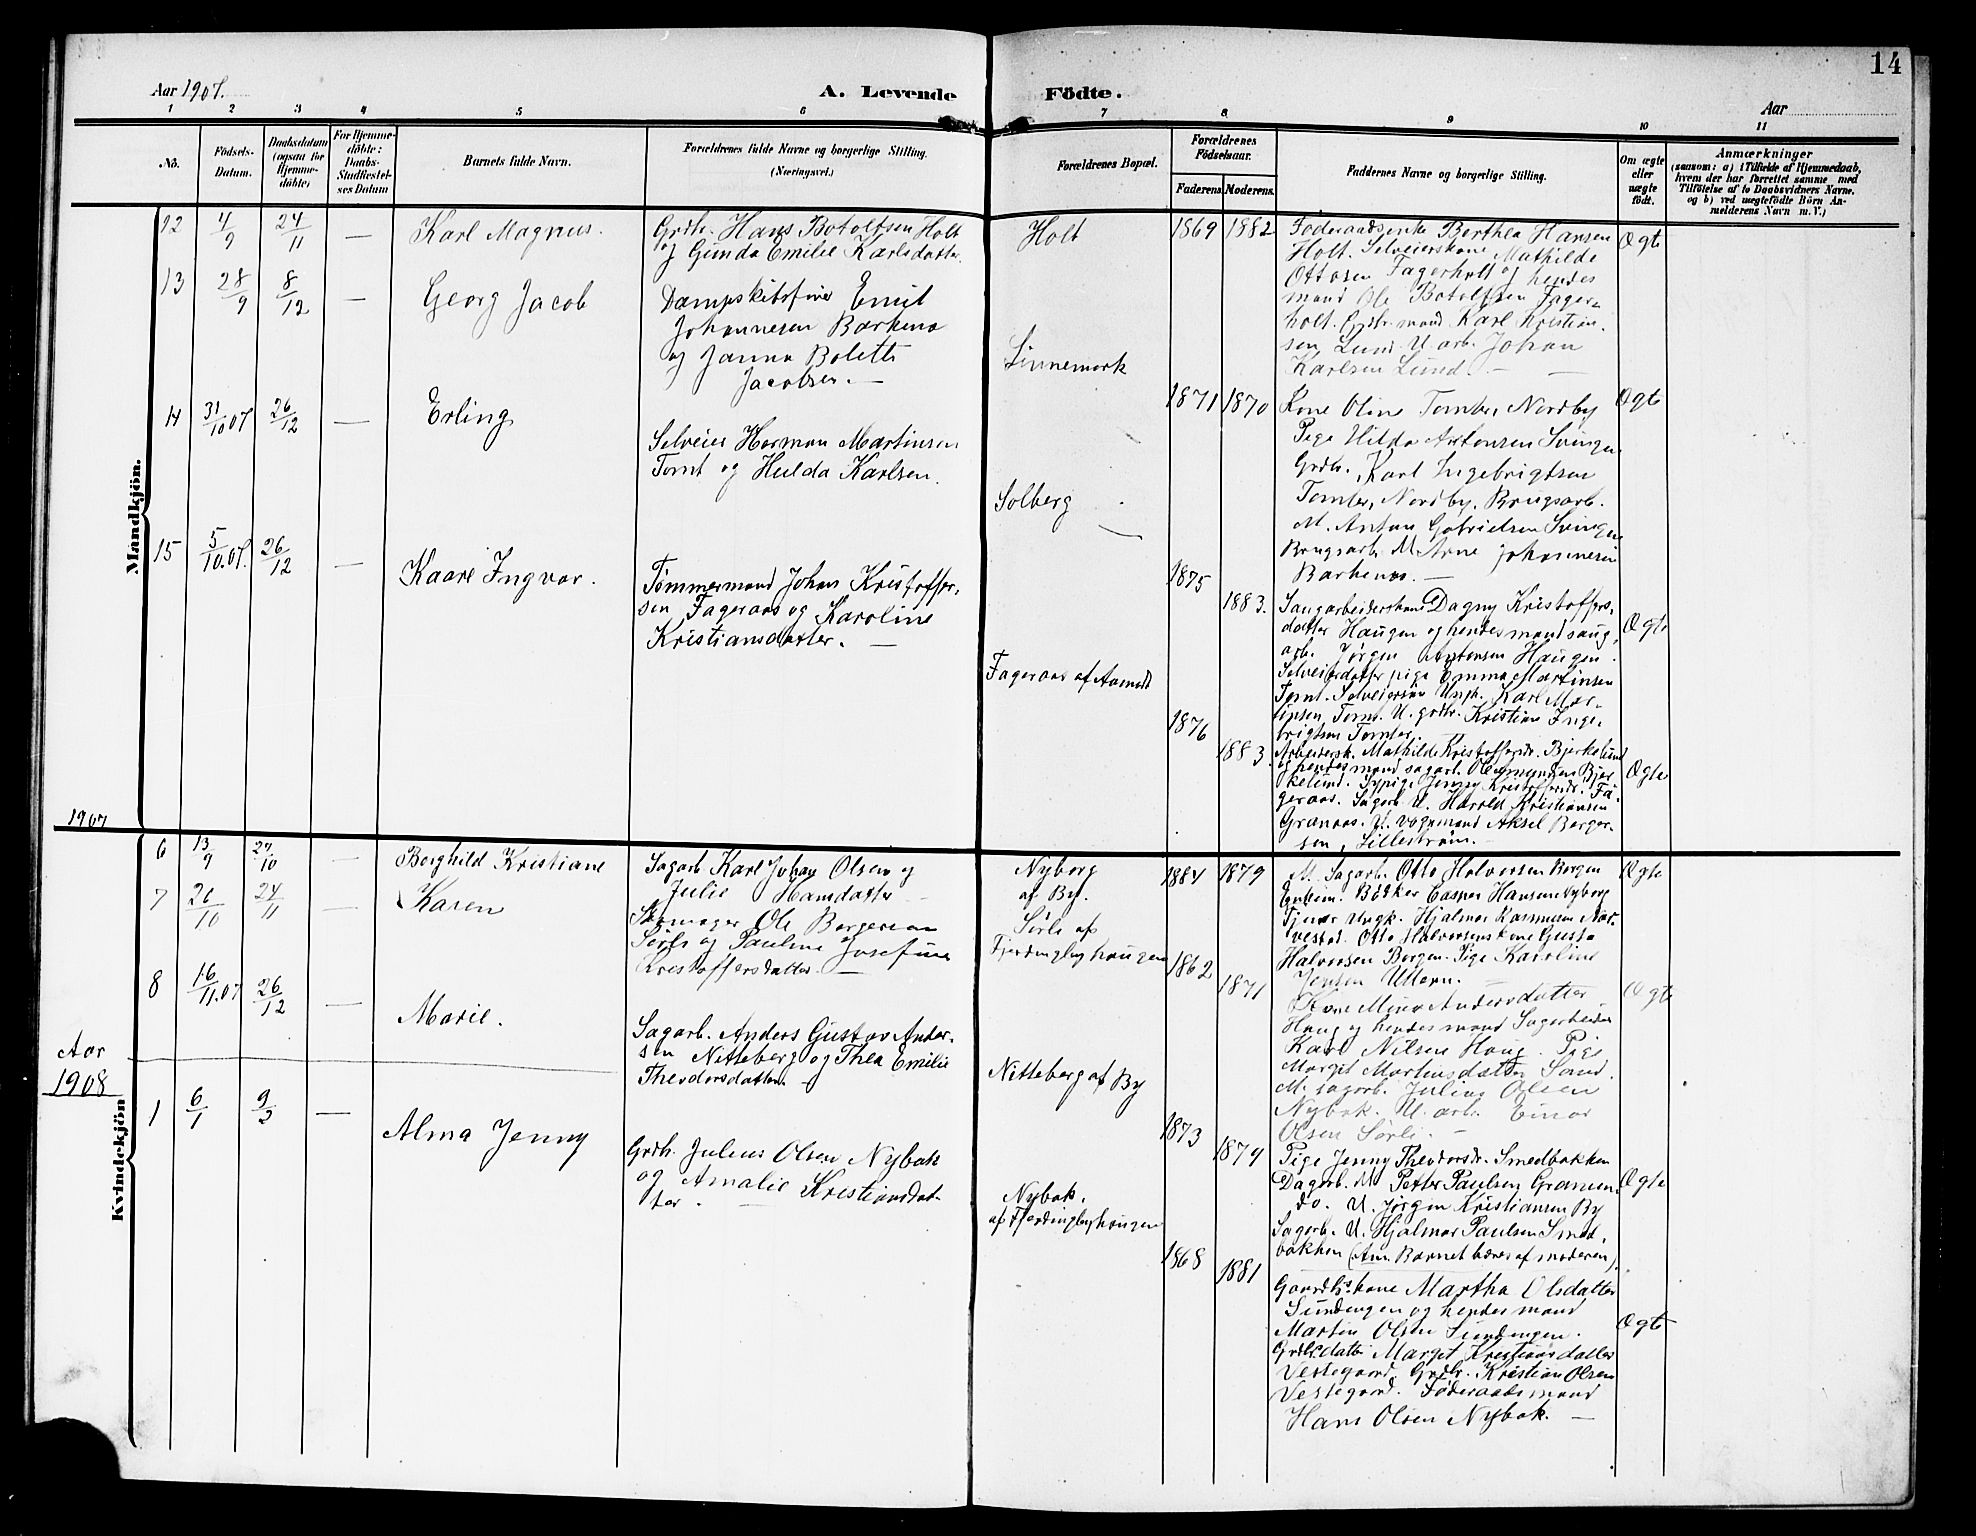 14
Aar 1907.
A. Levende Födte.
Aar
1 2 3 4 5 6 7 8 9 10 11
No.
Födsels-Datum.
Daabsdatum (ogsaa for Hjemme-döbte)
For Hjemme-döbte: Daabs-Stadfæstel-ses Datum
Barnets fulde Navn.
Forældrenes fulde Navne og borgerlige Stilling. (Næringsvei.)
Forældrenes Bopæl.
Forældrenes Födselsaar.
Faderens
Moderens.
Faddernes Navne og borgerlige Stilling.
Om ægte eller uægte födt.
Anmærkninger
(saasom: a) i Tilfælde af Hjemmedaab,
hvem der har forrettet samme med
Tilföielse af to Daabsvidners Navne,
og b) ved uægtefödte Börn An-
melderens Navn m. V.)
Mandkjön.
12 4/9 24/11 — Karl Magnus.
Grdbr. Hans Botolfsen Holt
og Gunda Emilie Karlsdatter.
Holt
1869 1882
Föderaadsenke Berthea Hansen
Holt. Selveierskone Mathilde
Ottosen Fagerholt og hendes
mand Ole Botolfsen Fager-
holt. Grdbr. mand Karl Kristian-
sen Lund. U. arb. Johan
Karlsen Lund. —
Ægte
13 28/9 8/12 — Georg Jacob
Dampskibsfører Emil
Johannesen Barkenæs
og Janna Bolette
Jacobsen. —
Linnemark
1871 1870
Kone Oline Tomter, Nordby
Pige Hilda Antonsen Svingen
Grdbr. Karl Ingebrigtsen
Tomter, Nordby, Brugsarb.
M. Anton Gabrielsen Svingen
Brugsarb. M. Arne Johannesen
Barkenæs. —
Ægte
14 31/10 07 26/12 — Erling
Selveier Herman Martinsen
Tomt og Hulda Karlsen.
Solberg
1875 1883.
Saugarbeiderskone Dagny Kristoffers-
datter Haugen og hendes mand saug-
arb. Jørgen Antonsen Haugen.
Selveierdatter pige Emma Martinsen
Tomt. Selveiersøn Ungk. Karl Mar-
tinsen, Tomt. U. grdbr. Kristian Inge-
brigtsen Tomter.
Ægte
15 5/10.07. 26/12 — Kaare Ingvar.
Tømmermand Johan Kristoffer-
sen Fageraas og Karoline
Kristiansdatter. —
Fageraas af Aamodt
1876 1883.
Arbeidersk. Mathilde Kristoffersdr. Bjerkelund
og hendes mand sagarb. Ole Bjer-
kelund. Sypige Jenny Kristoffersdr. Fa-
geraas. Sagarb. U. Harald Kristiansen
Granaas. U. vognmand Aksel Berger-
sen, Lillestrøm. —
Ægte
1907
Kvindekjön
6 13/9 27/10 — Borghild Kristiane
Sagarb. Karl Johan Olsen og
Julie Hansdatter —
Nyborg
af By.
1884 1879
M. Sagarb. Otto Halvorsen Borgen
Bødker Casper Hansen Nyborg
Tjener Ungk. Hjalmar Rasmussen
Otto Halvorsens kone Gusta
Halvorsen Borgen. Pige Karoline
Jensen Ullern. —
Ægte
7 20/10 24/11 — Karen
Skomager Ole Bergersen
Sörli og Pauline Josefine
Kristoffersdatter. —
Sörli af
Fjerdingbyhaugen
1862 1871
Kone Mina Andersdatter
Haug og hendes mand Sagarbeider
Karl Nilsen Haug. Pige
Margit Martinsdatter Sand.
M. sagarb. Julius Olsen
Nybak. U. arb. Einar
Olsen Sörli. —
Ægte
8 16/11.07 26/12 — Marie.
Sagarb. Anders Gustav Ander-
sen Nitteberg og Thea Emilie
Theodorsdatter.
Nitteberg af By
1873 1879
Pige Jenny Theodorsdr. Smedbakken
Dagarb. M. Petter Paulsen
do. U. Jørgen Kristiansen By
Sagarb. U. Hjalmar Paulsen Smed-
bakken (Anm. Barnet bæres af moderen).
Ægte
Aar
1908
1 6/1 9/2 — Alma Jenny
Grdbr. Julius Olsen Nybak
og Amalie Kristiansdat-
ter. —
Nybak.
af Fjerdingbyhaugen
1868 1881
Gaardbr.kone Martha Olsdatter
Sundengen og hendes mand
Martin Olsen Sundengen.
Grdbr.datter Margit Kristiansdatter
Vestegaard. Grdbr. Kristian Olsen
Vestegaard. Föderaadsmand
Hans Olsen Nybak. —
Ægte